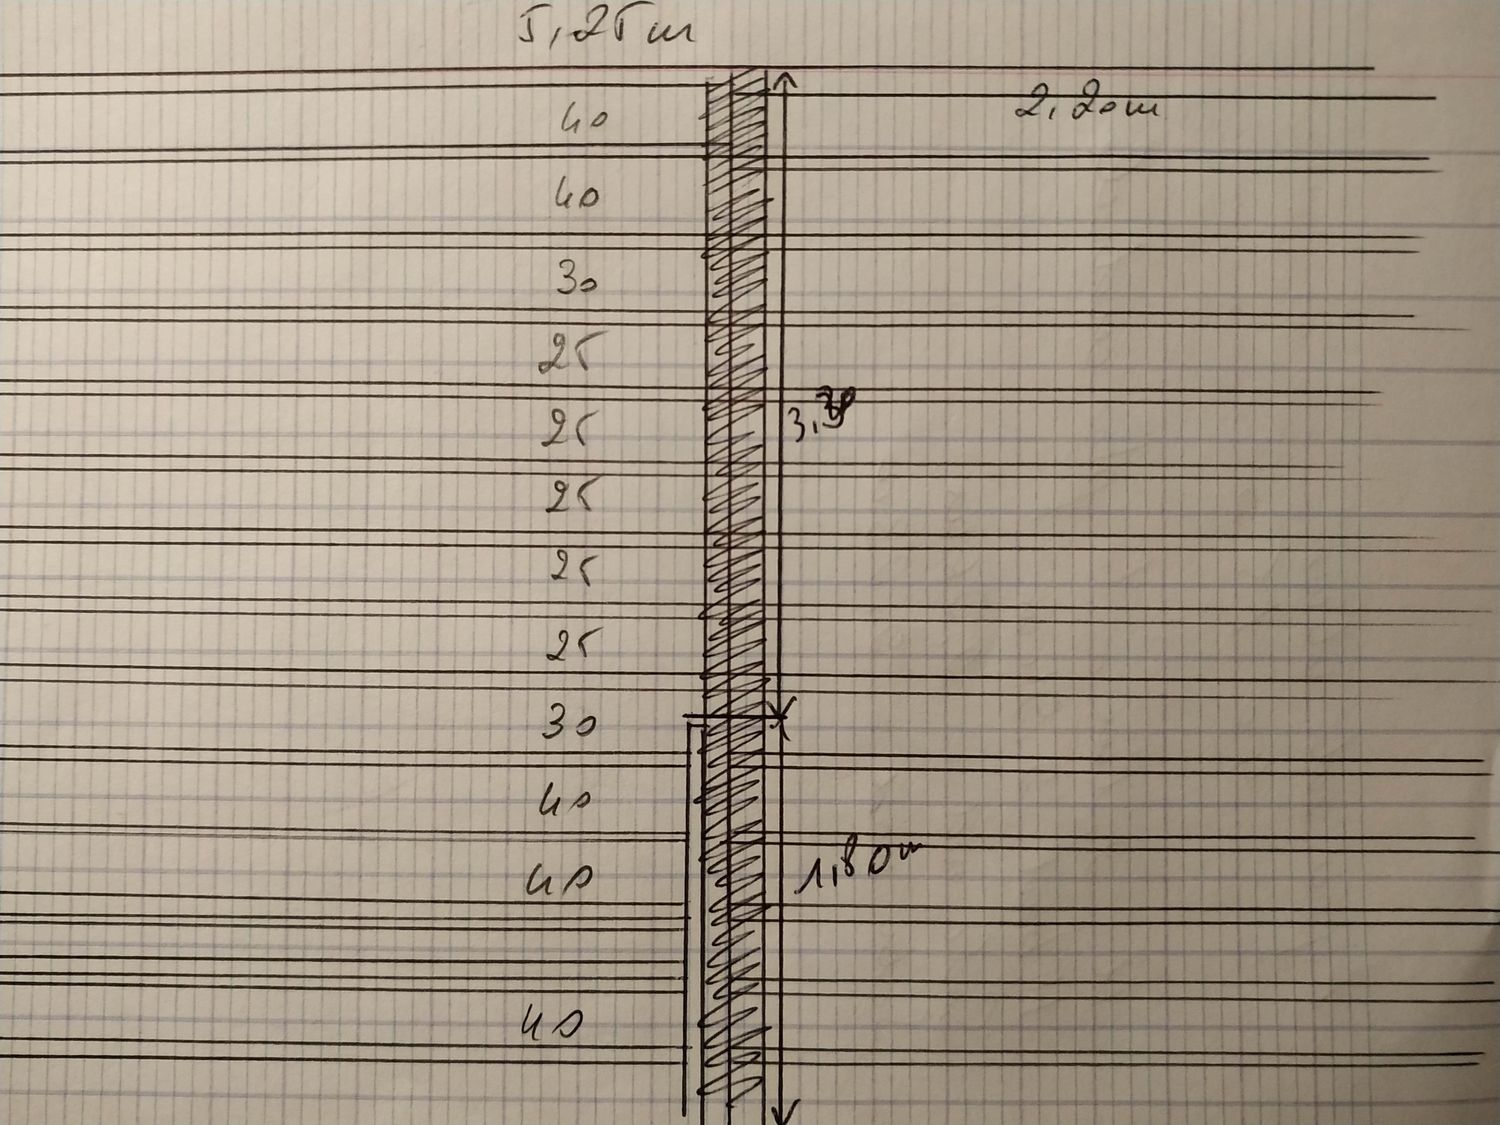 5,25m
2,20m
40
40
30
25
25
25
25
25
30
40
40
1,80m
40